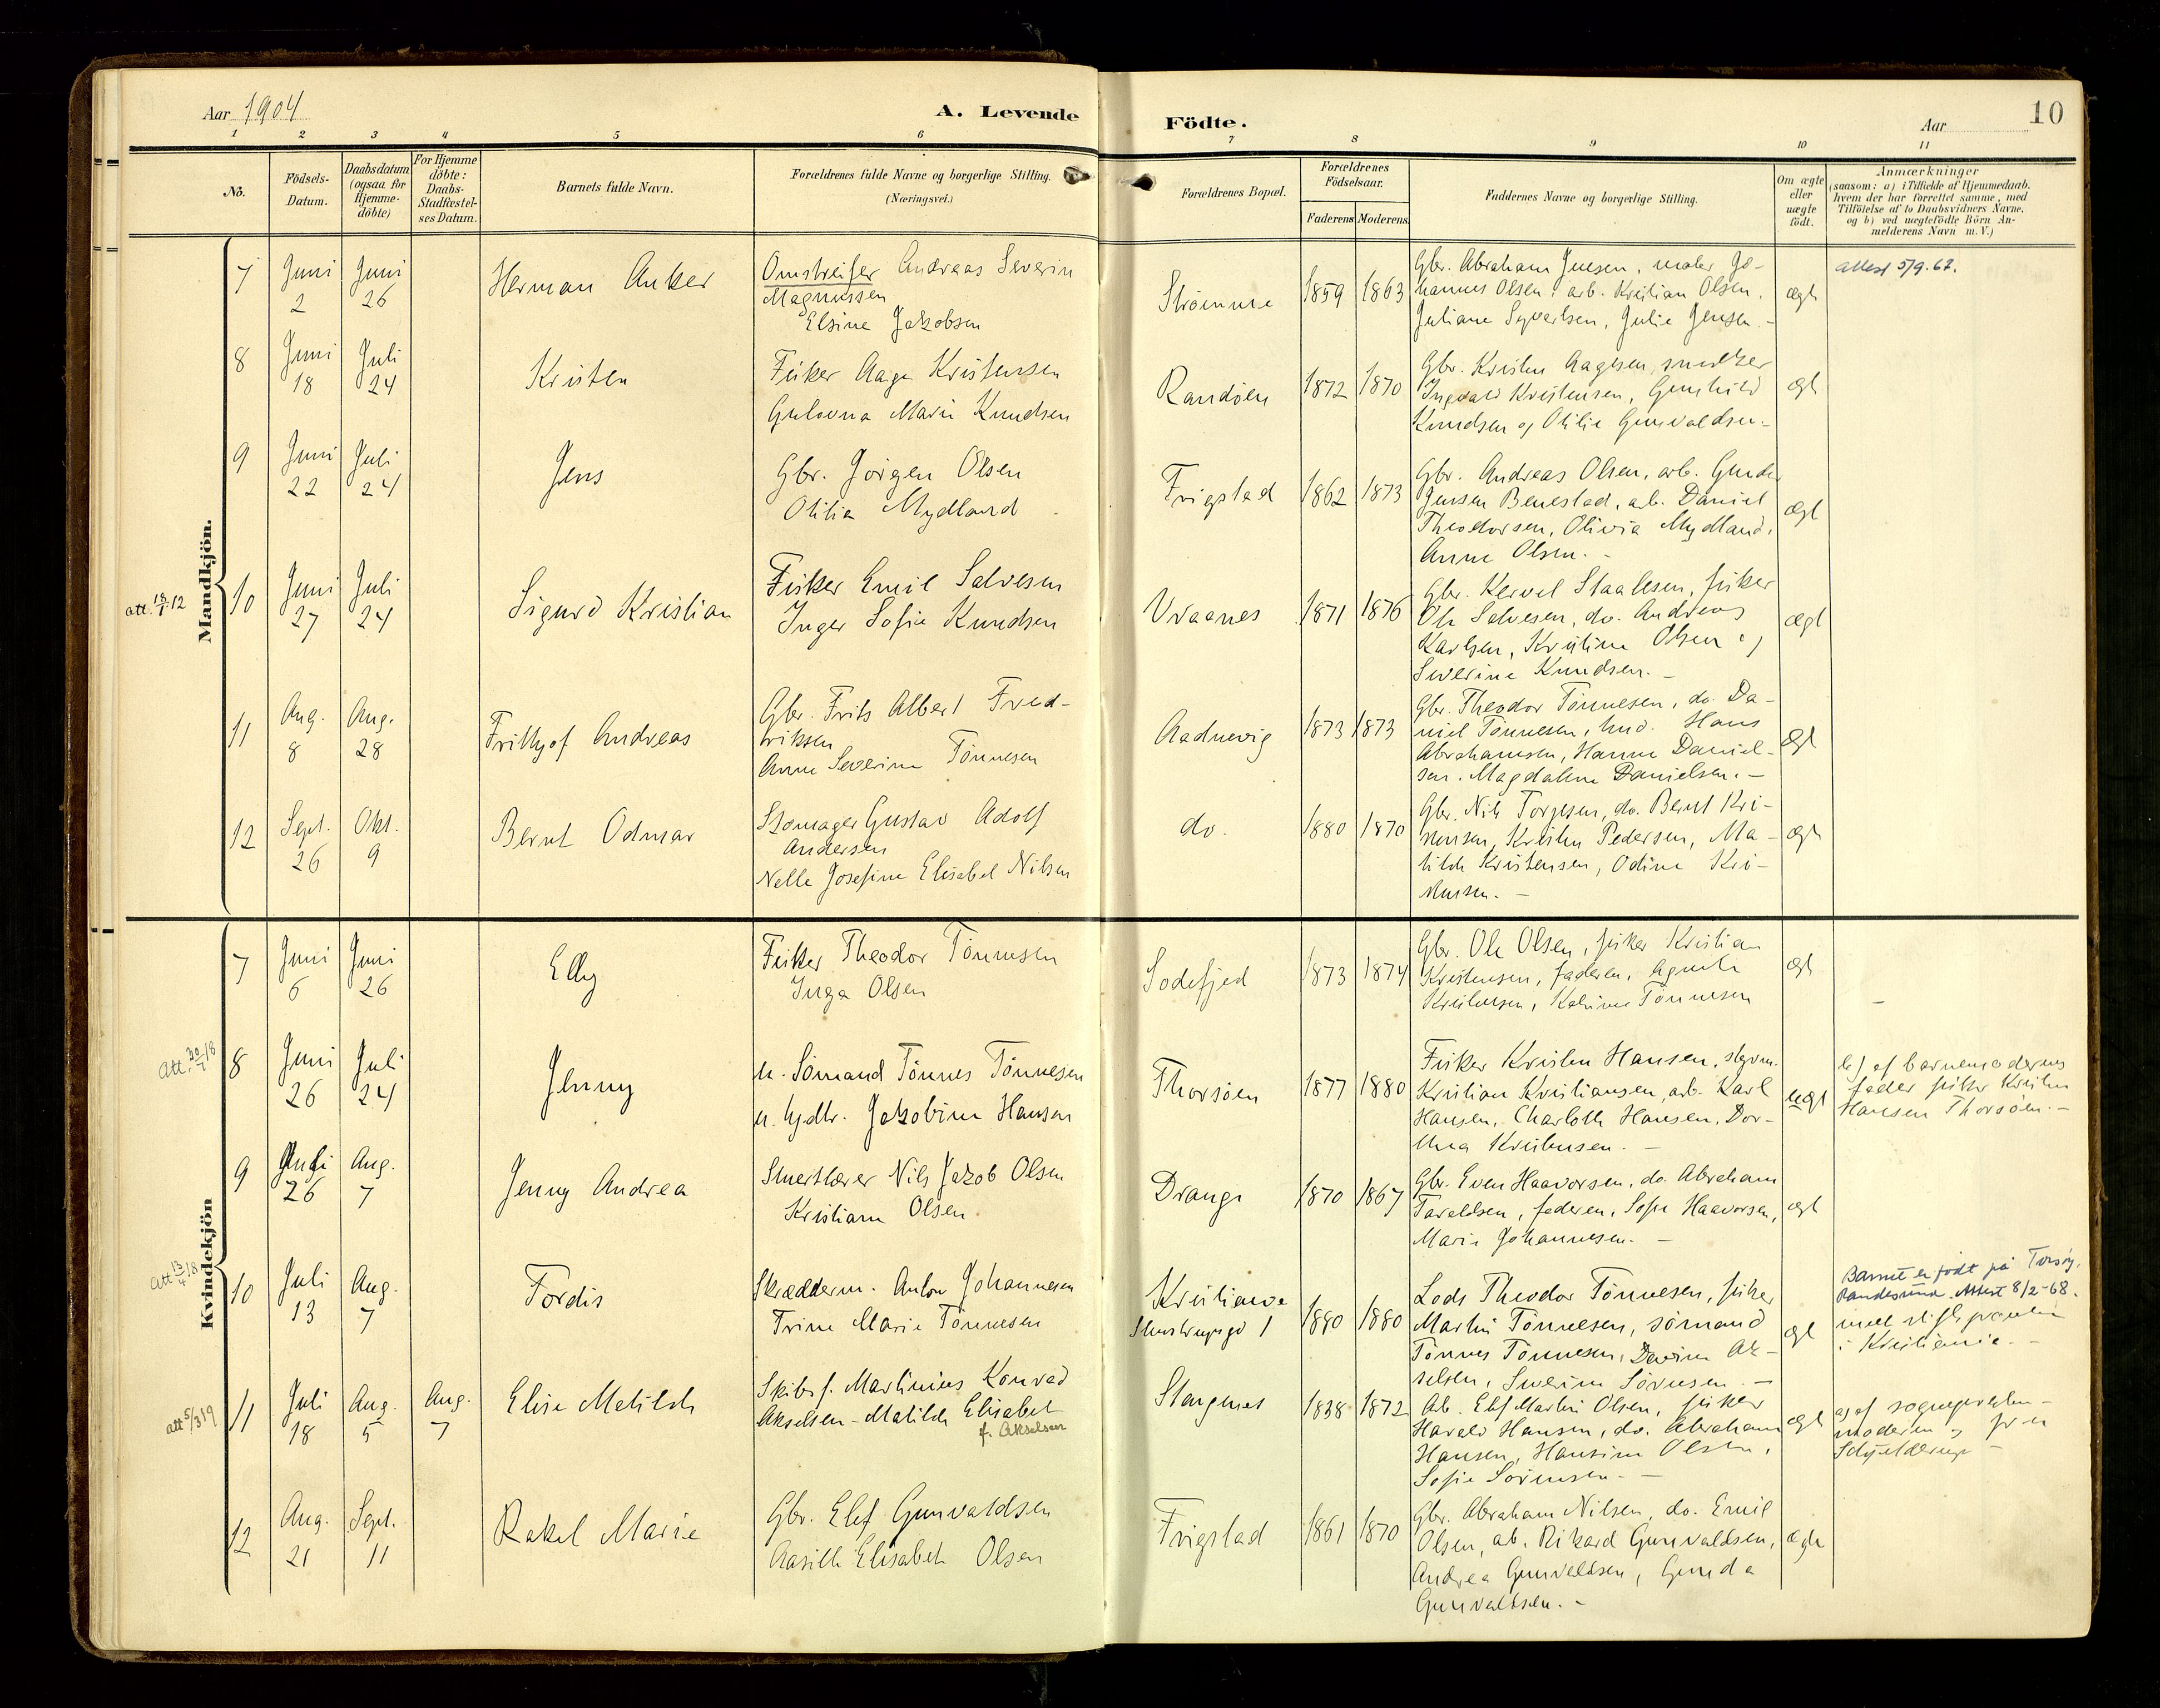 Aar 1904
A. Levende
Födte.
Aar
10
1 2 3 4 5 6 7 8 9 10 11
No.
Födsels-
Datum.
Daabsdatum
(ogsaa for
Hjemme-
döbte)
For Hjemme
döbte:
Daabs-
Stadfæstel-
ses Datum.
Barnets fulde Navn.
Forældrenes fulde Navne og borgerlige Stilling.
(Næringsvei.)
Forældrenes Bopæl.
Forældrenes
Födselsaar.
Faderens Moderens
Faddernes Navne og borgerlige Stilling.
Om ægte
eller
uægte
födt.
Anmærkninger
(saasom: a) i Tilfælde af Hjemmedaab,
hvem der har forrettet samme, med
Tilföielse af to Daabsvidners Navne.
og b) ved uægtefödte Börn An-
melderens Navn m. V.)
Mandkjön.
7
Juni
2
Juni
26
Herman Anker
Omstreifer Andreas Severin
Magnussen
Elsine Jakobsen
Strømme
1859 1863
Gbr. Abraham Jensen, maler Jo-
hannes Olsen, arb. Kristian Olsen,
Juliane Syvertsen, Julie Jensen. -
ægt
attest 5/9.62.
8
Juni
18
Juli
24
Kristen
Fisker Aage Kristensen
Gulovna Marie Knudsen
Randøen
1872 1870
Gbr. Kristen Aagesen, snedker
Ingvald Kristensen, Gunhild
Knudsen og Otilie Gunvaldsen -
ægt
9
Juni
22
Juli
24
Jens
Gbr. Jørgen Olsen
Otilia Mydland
Frigstad
1862 1873
Gbr. Andreas Olsen, arb. Gunder
Jensen Benestad, arb. Daniel
Theodorsen, Olivia Mydland,
Anne Olsen. -
ægt
att. 18/1 12
10
Juni
27
Juli
24
Sigurd Kristian
Fisker Emil Salvesen
Inger Sofie Knudsen
Vraanes
1871 1876
Gbr. Kervel Staalesen, fisker
Ole Salvesen, do. Andreas
Karlsen, Kristine Olsen og
Severine Knudsen. -
ægt
11
Aug.
8
Aug.
28
Frithjof Andreas
Gbr. Frits Albert Fred-
riksen
Anne Severine Tönnesen
Aadnevig
1873 1873
Gbr. Theodor Tönnesen, do. Da-
niel Tönnesen, Hans
Abrahamsen, Hanne Daniel-
sen. Magdalene Danielsen. -
ægt
12
Sept.
26
Okt.
9
Bernt Odmar
Skomager Gustav Adolf
Andersen
Nelle Josefine Elisabet Nilsen
do.
1880 1870
Gbr. Nils Torjesen, do. Bernt Kri-
stensen, Kristen Pedersen, Ma-
tilde Kristensen, Odine Kri-
stensen. -
ægt
Kvindekjön
7
Juni
6
Juni
26
Elly
Fisker Theodor Tönnesen
Inga Olsen
Sodefjed
1873 1874
Gbr. Ole Olsen, fisker Kristian
Kristensen, faderen, Agnete
Kristensen, Katrine Tönnesen
ægt
-
Att. 30/1 18
8
Juni
26
Juli
24
Jenny
u. Sömand Tönnes Tönnesen
u. Gdtr. Jakobine Hansen
Thorsöen
1877 1880
Fisker Kristen Hansen, styrm.
Kristian Kristiansen, arb. Karl
Hansen, Charlotte Hansen, Dor-
thea Kristensen. -
uægt
b) af barnemoderens
fader fisker Kristen
Hansen Thorsöen. -
9
Juli
26
Aug.
7
Jenny Andrea
Smertlærer Nils Jakob Olsen
Kristiane Olsen
Drange
1870 1867
Gbr. Even Haavorsen, do. Abraham
Taraldsen, faderen, Sofie Haavorsen,
Marie Johannesen. -
ægt
Att 13/4 18
10
Juli
13
Aug.
7
Tordis
Skrædderm. Anton Johannesen
Trine Marie Tönnesen
Kristiania
1880 1880
Lods Theodor Tönnesen, fisker
Martin Tönnesen, sömand
Tönnes Tönnesen, Davine Ak-
selsen, Severine Sörensen. -
ægt
Barnet er født på Torsøy,
Randesund. Attest 8/2-68.
i Kristiania. -
att 5/3 19
11
Juli
18
Aug.
5
Aug.
7
Elise Matilde
Skibsf. Martinius Konrad
Akselsen - Matilde Elisabet
f. Akselsen
Stangenes
1838 1872
Ab. Elef Martin Olsen, fisker
Harald Hansen, do. Abraham
Hansen, Hansine Olsen,
Sofie Sörensen. -
ægt
a) af sognepræsten -
moderen og fru
Schjelderup -
12
Aug.
21
Sept.
11
Rakel Marie
Gbr. Elef Gunvaldsen
Aasille Elisabeth Olsen
Frigstad
1861 1870
Gbr. Abraham Nilsen, do. Emil
Olsen, ab. Rikard Gunvaldsen,
Andrea Gunvaldsen, Gunda
Gunvaldsen. -
ægte